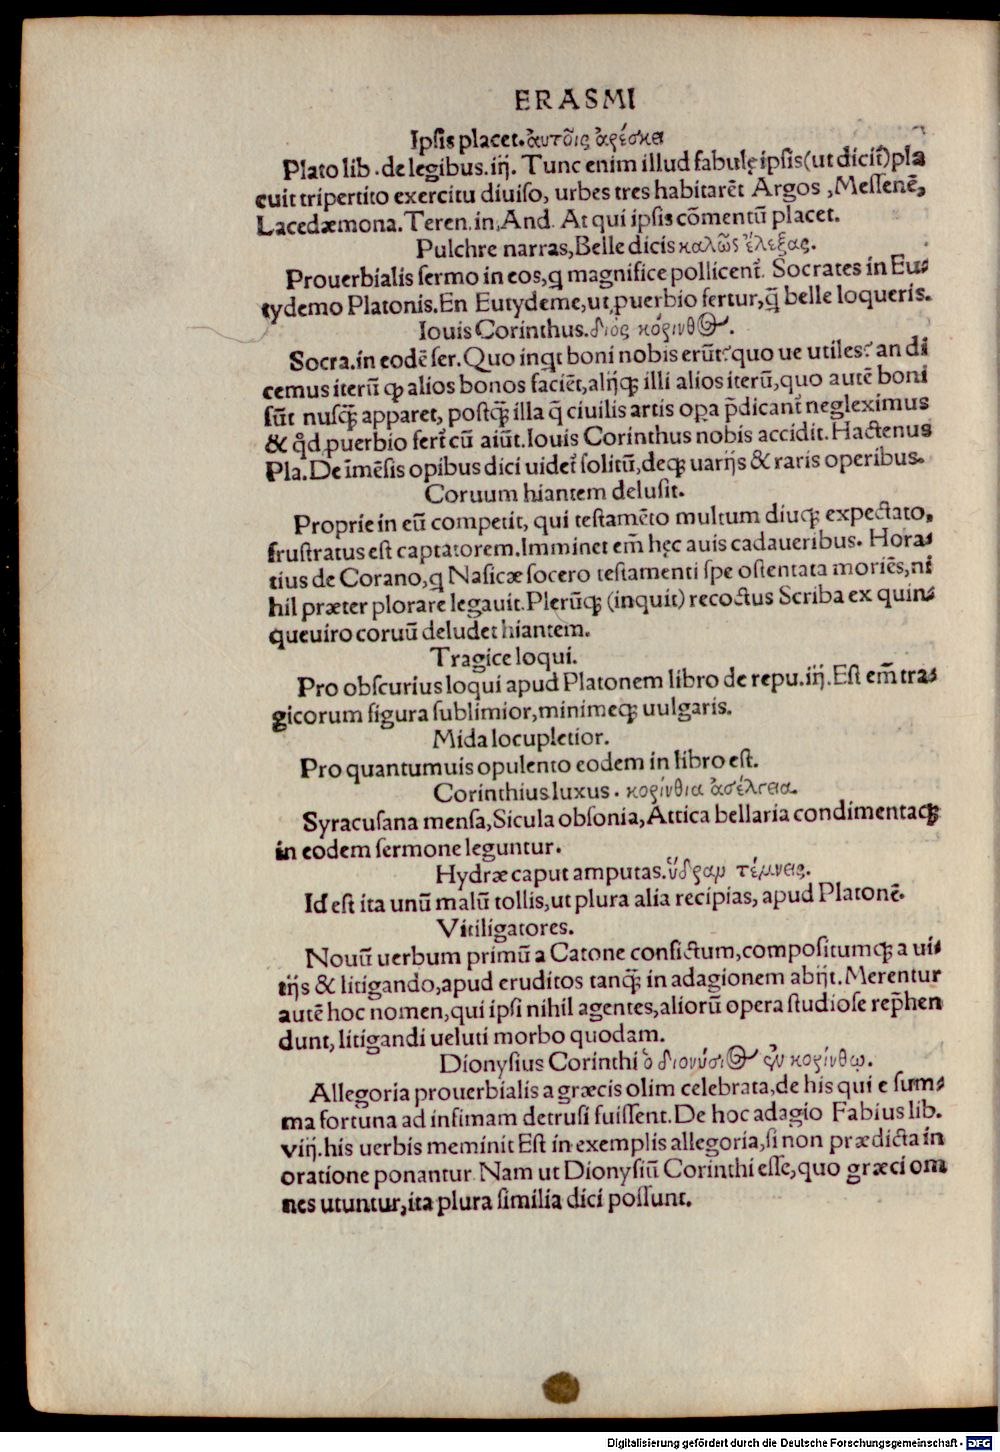 ERASMI
Ipsis placet. ἀυτο͂ις ἀρέσκει
Plato lib . de legibus.iij. Tunc enim illud fabulę ipsis (ut dicit᷑) pla
cuit tripertito exercitu diuiso, urbes tres habitarēt Argos , Messenē,
Lacedæmona. Teren. in, And. At qui ipsis cōmentū placet.
Pulchre narras, Belle dicis καλῶς ἔλεξας.
Prouerbialis sermo in eos, q magnifice pollicent᷑. Socrates in Eu⸗
tydemo Platonis. En Eutydeme, ut ꝓuerbio fertur, q̄ belle loqueris.
Iouis Corinthus. διὸς κόρινθος.
Socra. in eodē ser. Quo inqt boni nobis erūt? quo ue utiles? an di
cemus iterū ꝙ alios bonos faciēt, alijqꝫ illi alios iterū, quo autē boni
sūt nusqꝫ̄ apparet, postqꝫ̄ illa q̄ ciuilis artis opa p̄dicant᷑ neglexímus
& qd̊ ꝓuerbio fert᷑ cū aiūt. Iouis Corinthus nobis accidit. Hactenus
Pla. De īmēsis opibus dici uidet᷑ solitū, deqꝫ uarijs & raris operibus.
Coruum hiantem delusit.
Proprie in eū competit, qui testamēto multum diuqꝫ expectato,
frustratus est captatorem. Imminet em̄ hęc auis cadaueribus. Hora⸗
tius de Corano, q Nasicæ socero testamenti spe ostentata moriēs, ni
hil præter plorare legauit. Plerūqꝫ (inquit) recoctus Scriba ex quin⸗
queuiro coruū deludet hiantem.
Tragice loqui.
Pro obscurius loqui apud Platonem libro de repu. iij. Est em̄ tra⸗
gicorum figura sublimior, minimeqꝫ uulgaris.
Mida locupletior.
Pro quantumuis opulento eodem in libro est.
Corinthius luxus . κορίνθια ἀσέλγεια.
Syracusana mensa, Sicula obsonia, Attica bellaria condimentaqꝫ
in eodem sermone leguntur.
Hydræ caput amputas. ὕδραν τέμνεις.
Id est ita unū malū tollis, ut plura alia recipias, apud Platonē.
Vitiligatores.
Nouū uerbum primū a Catone confictum, compositumqꝫ a ui⸗
tijs & litigando, apud eruditos tanqꝫ̄ in adagionem abijt. Merentur
autē hoc nomen, qui ipsi nihil agentes, aliorū opera studiose rep̄hen
dunt, litigandi ueluti morbo quodam.
Dionysius Corinthi ὁ διονύσιος ἐν κορίνθῳ.
Allegoria prouerbialis a græcis olim celebrata, de his qui e sum⸗
ma fortuna ad infimam detrusi fuissent. De hoc adagio Fabius lib.
viij. his uerbis meminit Est in exemplis allegoria, si non prædicta in
oratione ponantur Nam ut Dionysiū Corinthi esse, quo græci om
nes utuntur, ita plura similia dici possunt.
Digitalisierung gefördert durch die Deutsche Forschungsgemeinschaft - DFG